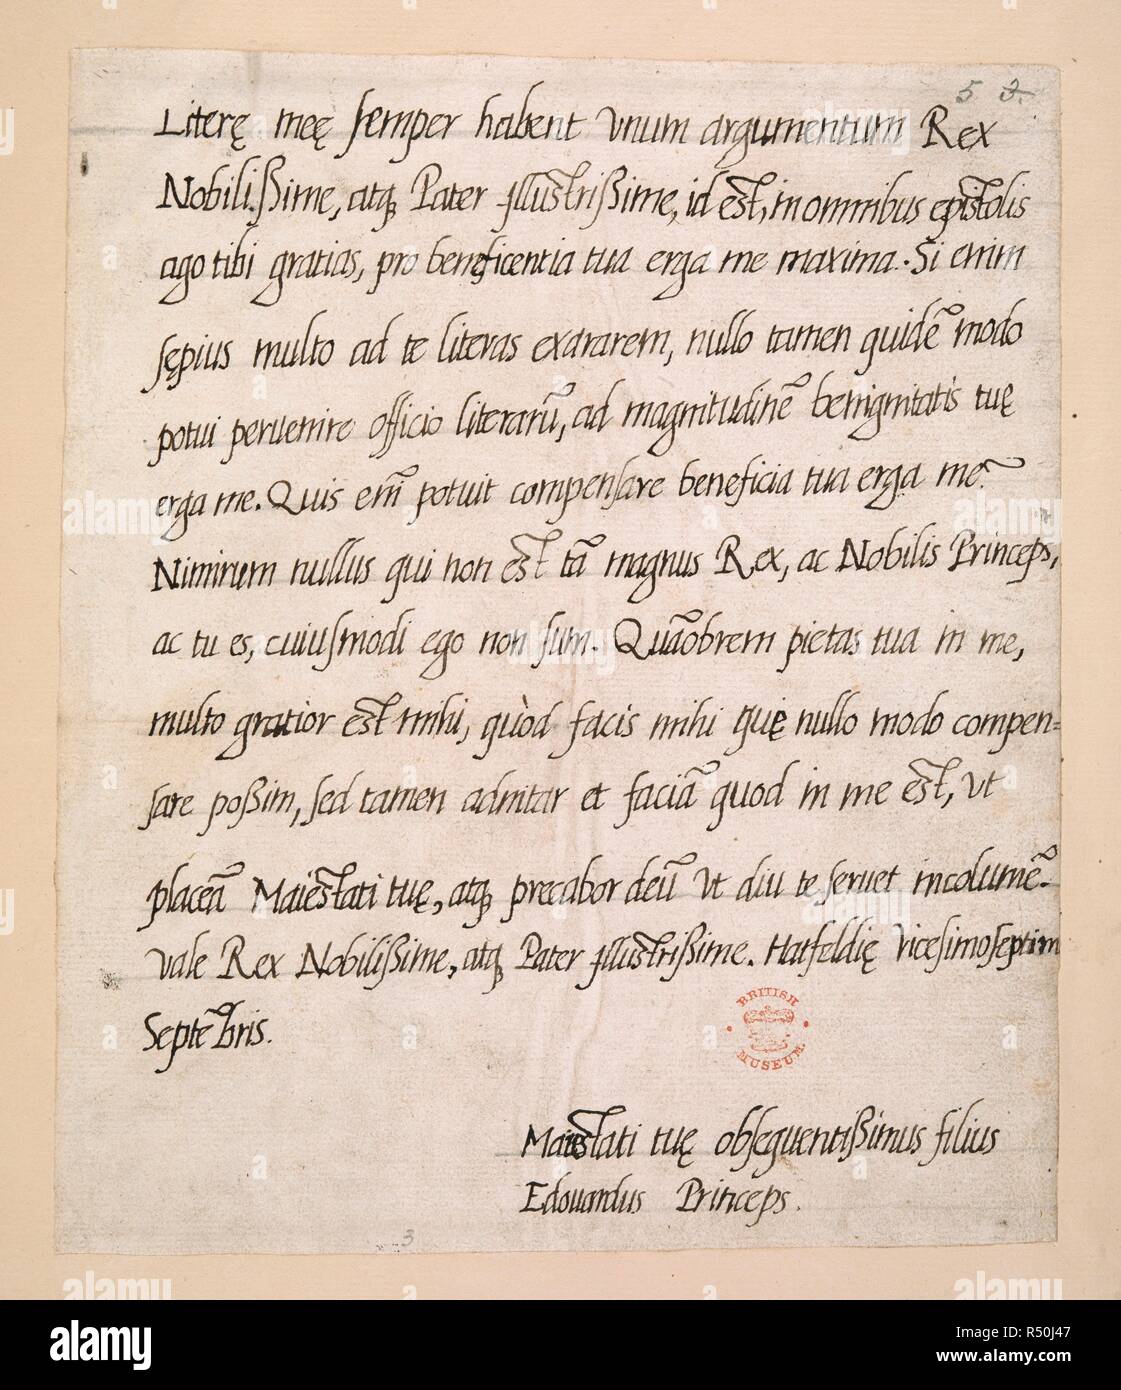 5 3.
Literę meę semper habent vnum argumentum Rex
Nobilißime, atq̢ Pater Illustrißime, id est, in omnibus epistolis
ago tibi gratias, pro beneficentia tua erga me maxima. Si enim
sępius multo ad te literas exararem, nullo tamen quidē modo
potui peruenire officio literarū, ad magnitudinē benignitatis tuę
erga me. Quis em̄ potuit compensare beneficia tua erga me?
Nimirum nullus qui non est tā magnus Rex, ac Nobilis Princeps,
ac tu es, cuiusmodi ego non sum. Quāobrem pietas tua in me,
multo gratior est mihi, quòd facis mihi quę nullo modo compen=
sare poßim, sed tamen adnitar et faciā quod in me est, vt
placeā Maiestati tuę, atq̢ precabor deū vt diu te seruet incolumē.
Vale Rex Nobilißime, atq̢ Pater Illustrißime. Hatfeldię vicesimoseptim
Septēbris.
BRITISH
MUSEUM.
Maiestati tuę obsequentißimus filius
Edouardus Princeps.
3
alamy
Image ID: R50J47
www.alamy.com